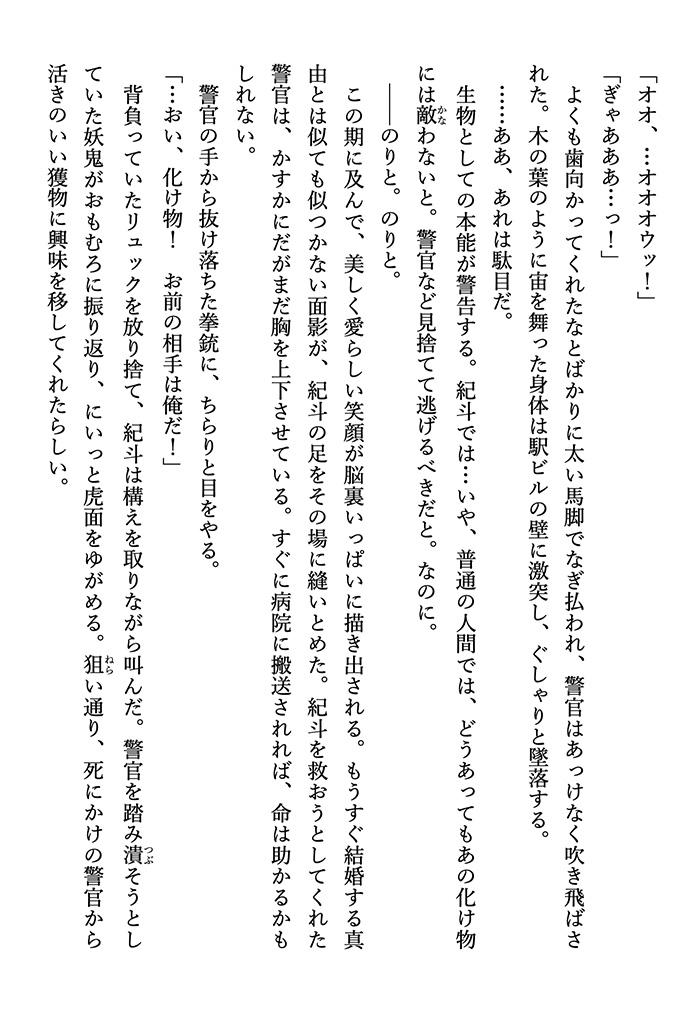 「オオ、…オオオウッ！」
「ぎゃあああ…っ！」
　よくも歯向かってくれたなとばかりに太い馬脚でなぎ払われ、警官はあっけなく吹き飛ばさ
れた。木の葉のように宙を舞った身体は駅ビルの壁に激突し、ぐしゃりと墜落する。
　……ああ、あれは駄目だ。
　生物としての本能が警告する。紀斗では…いや、普通の人間では、どうあってもあの化け物
には敵かなわないと。警官など見捨てて逃げるべきだと。なのに。
　――のりと。のりと。
　この期に及んで、美しく愛らしい笑顔が脳裏いっぱいに描き出される。もうすぐ結婚する真
由とは似ても似つかない面影が、紀斗の足をその場に縫いとめた。紀斗を救おうとしてくれた
警官は、かすかにだがまだ胸を上下させている。すぐに病院に搬送されれば、命は助かるかも
しれない。
　警官の手から抜け落ちた拳銃に、ちらりと目をやる。
「…おい、化け物！　お前の相手は俺だ！」
　背負っていたリュックを放り捨て、紀斗は構えを取りながら叫んだ。警官を踏み潰つぶそうとし
ていた妖鬼がおもむろに振り返り、にいっと虎面をゆがめる。狙ねらい通り、死にかけの警官から
活きのいい獲物に興味を移してくれたらしい。